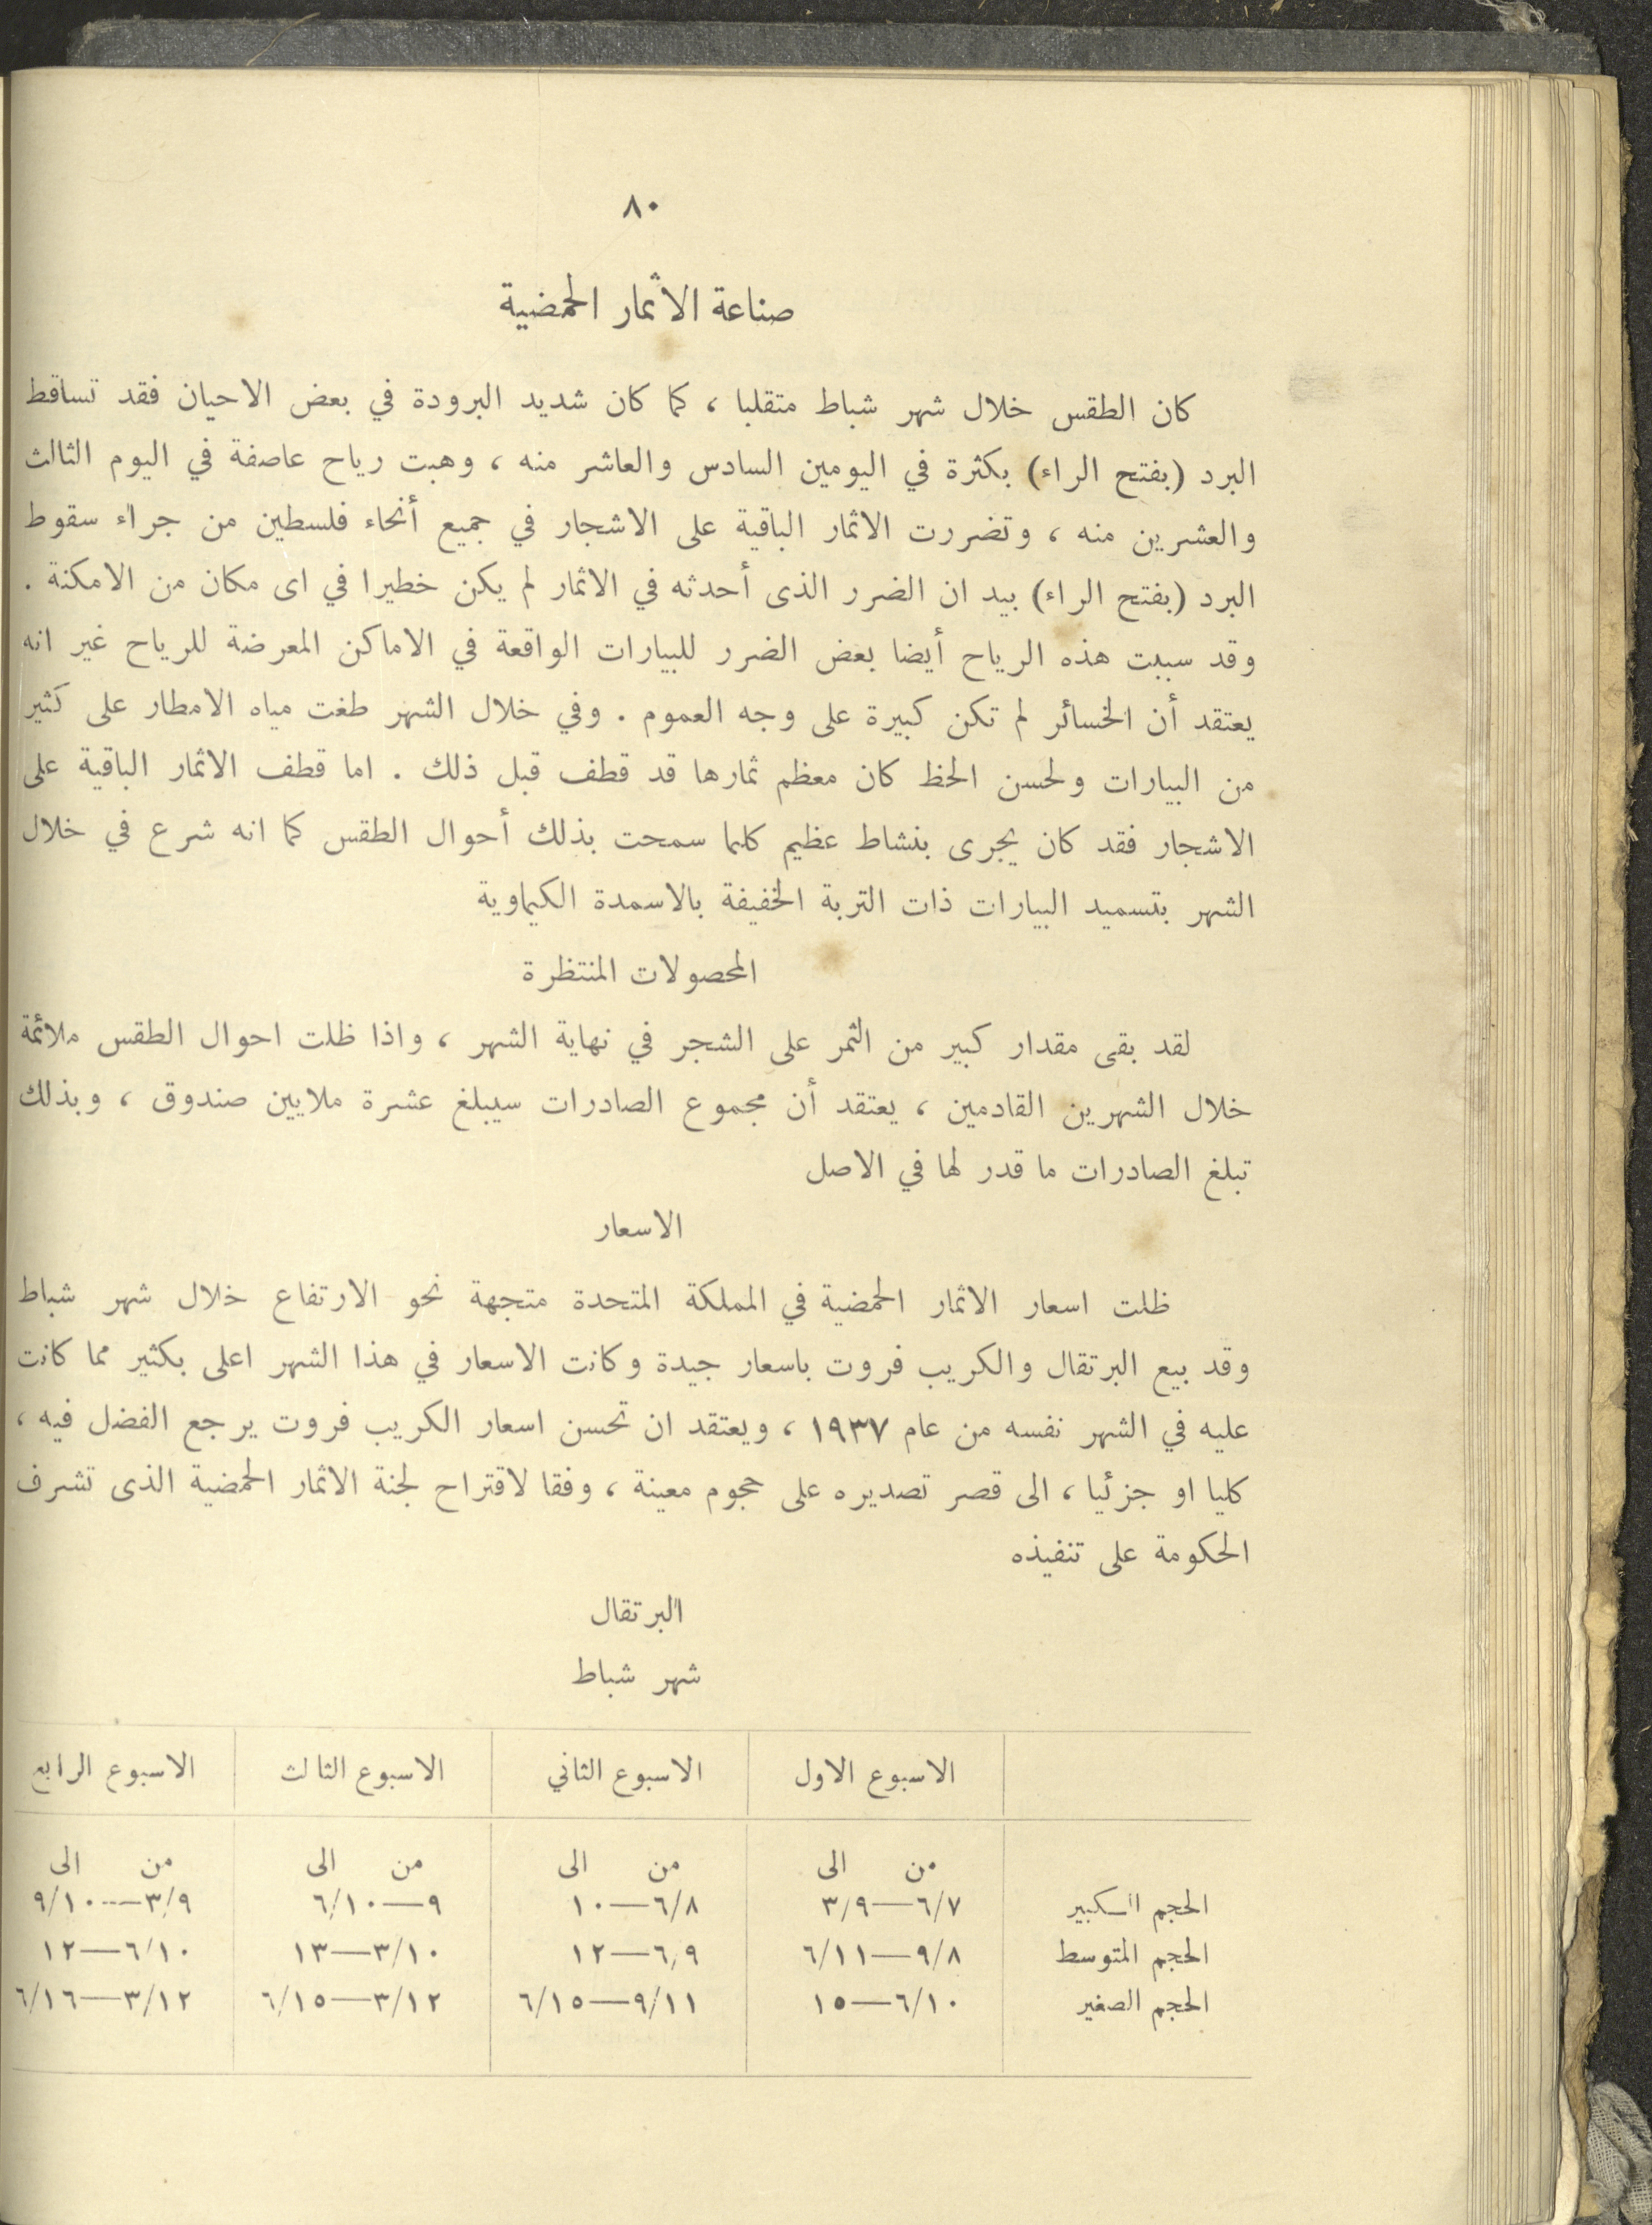 ٨٠
صناعة الاثمار الحمضية
كان الطقس خلال شهر شباط متقلبا ، كما كان شديد البرودة في بعض الاحيان فقد تساقط
البرد (بفتح الراء) بكثرة في اليومين السادس والعاشر منه ، وهبت رياح عاصفة في اليوم الثالث
والعشرين منه ، وتضررت الاثمار الباقية على الاشجار في جميع أنحاء فلسطين من جراء سقوط
البرد (بفتح الراء) بيد ان الضرر الذى أحدثه في الاثمار لم يكن خطيرا في اى مكان من الامكنة .
وقد سببت هذه الرياح أيضا بعض الضرر للبيارات الواقعة في الاماكن المعرضة للرياح غير انه
يعتقد أن الخسائر لم تكن كبيرة على وجه العموم . وفي خلال الشهر طغت مياه الامطار على كثير
من البيارات ولحسن الحظ كان معظم ثمارها قد قطف قبل ذلك . اما قطف الاثمار الباقية على
الاشجار فقد كان يجرى بنشاط عظيم كلما سمحت بذلك أحوال الطقس كما انه شرع في خلال
الشهر بتسميد البيارات ذات التربة الخفيفة بالاسمدة الكيماوية
المحصولات المنتظرة
لقد بقى مقدار كبير من الثمر على الشجر في نهاية الشهر ، واذا ظلت احوال الطقس ملائمة
خلال الشهرين القادمين ، يعتقد أن مجموع الصادرات سيبلغ عشرة ملايين صندوق ، وبذلك
تبلغ الصادرات ما قدر لها في الاصل
الاسعار
ظلت اسعار الاثمار الحمضية في المملكة المتحدة متجهة نحو الارتفاع خلال شهر شباط
وقد بيع البرتقال والكريب فروت باسعار جيدة وكانت الاسعار في هذا الشهر اعلى بكثير مما كانت
عليه في الشهر نفسه من عام ١٩٣٧ ، ويعتقد ان تحسن اسعار الكريب فروت يرجع الفضل فيه ،
كليا او جزئيا ، الى قصر تصديره على حجوم معينة ، وفقا لاقتراح لجنة الاثمار الحمضية الذى تشرف
الحكومة على تنفيذه
البرتقال
شهر شباط
الاسبوع الاول الاسبوع الثاني الاسبوع الثالث الاسبوع الرابع
من الى من الى من الى من الى
الحجم الكبير ٦/٧—٣/٩ ٦/٨—١٠ ٩—٦/١٠ ٣/٩—٩/١٠
الحجم المتوسط ٩/٨—٦/١١ ٦/٩—١٢ ٣/١٠—١٣ ٦/١٠—١٢
الحجم الصغير ٦/١٠—١٥ ٩/١١—٦/١٥ ٣/١٢—٦/١٥ ٣/١٢—٦/١٦